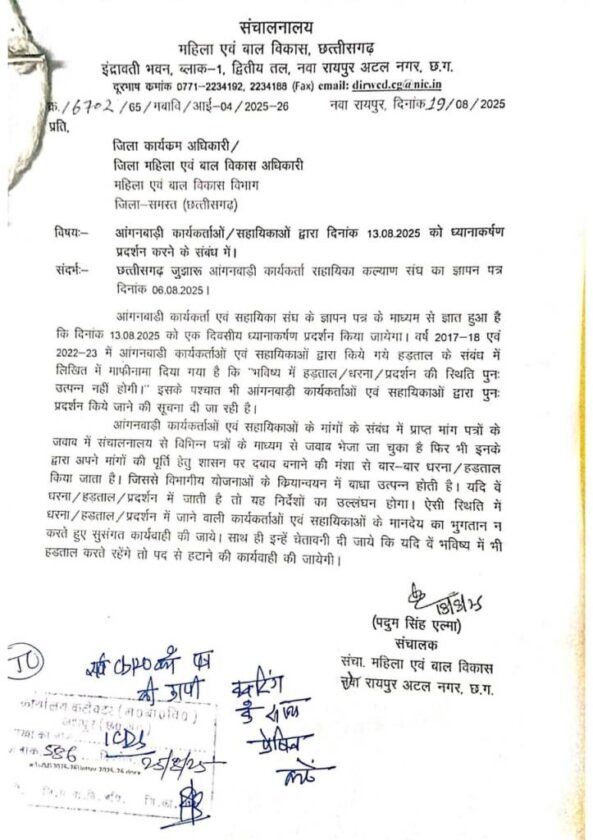 संचालनालय
महिला एवं बाल विकास, छत्तीसगढ़
इंद्रावती भवन, ब्लाक-1, द्वितीय तल, नवा रायपुर अटल नगर, छ.ग.
दूरभाष कमांक 0771-2234192, 2234188 (Fax) email: dirwcd.cg@nic.in
क./6702/65/मबावि/आई-04/2025-26 नवा रायपुर, दिनांक 19/08/2025
प्रति,
जिला कार्यकम अधिकारी/
जिला महिला एवं बाल विकास अधिकारी
महिला एवं बाल विकास विभाग
जिला-समस्त (छत्तीसगढ़)
विषयः- आंगनबाड़ी कार्यकर्ताओं/सहायिकाओं द्वारा दिनांक 13.08.2025 को ध्यानाकर्षण
प्रदर्शन करने के संबंध में।
संदर्भः- छत्तीसगढ़ जुझारू आंगनबाड़ी कार्यकर्ता सहायिका कल्याण संघ का ज्ञापन पत्र
दिनांक 06.08.2025।
आंगनबाड़ी कार्यकर्ता एवं सहायिका संघ के ज्ञापन पत्र के माध्यम से ज्ञात हुआ है
कि दिनांक 13.08.2025 को एक दिवसीय ध्यानाकर्षण प्रदर्शन किया जायेगा। वर्ष 2017-18 एवं
2022-23 में आंगनबाडी कार्यकर्ताओं एवं सहायिकाओं द्वारा किये गये हडताल के संबंध में
लिखित में माफीनामा दिया गया है कि "भविष्य में हडताल/धरना/प्रदर्शन की स्थिति पुनः
उत्पन्न नहीं होगी।" इसके पश्चात भी आंगनबाडी कार्यकर्ताओं एवं सहायिकाओं द्वारा पुनः
प्रदर्शन किये जाने की सूचना दी जा रही है।
आंगनबाडी कार्यकर्ताओं एवं सहायिकाओं के मांगों के संबंध में प्राप्त मांग पत्रों के
जवाब में संचालनालय से विभिन्न पत्रों के माध्यम से जवाब भेजा जा चुका है फिर भी इनके
द्वारा अपने मांगों की पूर्ति हेतु शासन पर दबाव बनाने की मंशा से बार-बार धरना/हडताल
किया जाता है। जिससे विभागीय योजनाओं के कियान्वयन में बाधा उत्पन्न होती है। यदि वें
धरना/हडताल/प्रदर्शन में जाती है तो यह निर्देशों का उल्लंघन होगा। ऐसी स्थिति में
धरना/हडताल/प्रदर्शन में जाने वाली कार्यकर्ताओं एवं सहायिकाओं के मानदेय का भुगतान न
करते हुए सुसंगत कार्यवाही की जाये। साथ ही इन्हें चेतावनी दी जाये कि यदि वें भविष्य में भी
हडताल करते रहेंगे तो पद से हटाने की कार्यवाही की जायेगी।
18/8/25
(पदुम सिंह एल्मा)
संचालक
संचा. महिला एवं बाल विकास
नवा रायपुर अटल नगर, छ.ग.
CDPO को पत्र
की कापी
के साथ
प्रेषित
करें
कार्यालय कलेक्टर (म०बा०वि०)
586
ICDS
25/8/25